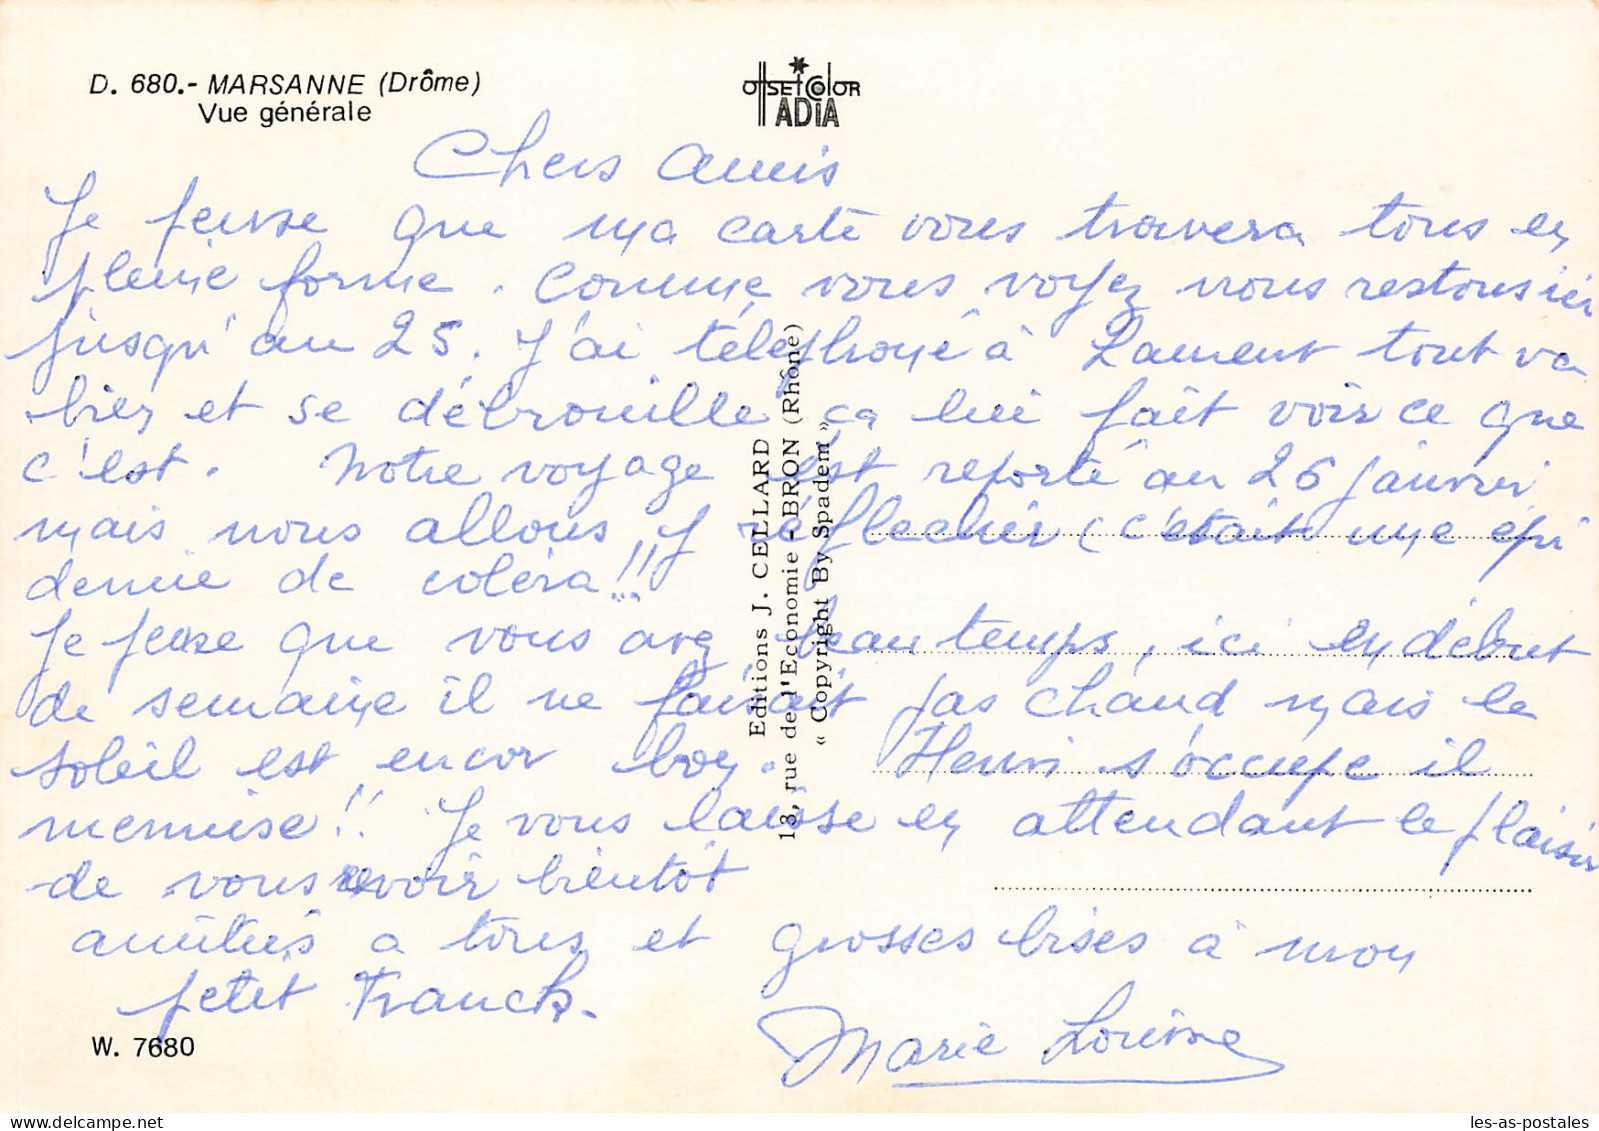 D. 680.- MARSANNE (Drôme)
Vue générale
OffSEtColOR
ADIA
Chers amis
Je pense que ma carte vous trouvera tous en
pleine forme. Comme vous voyez nous restons ici
jusqu'au 25. J'ai téléphoné à Laurent tout va
bien et se débrouille ça lui fait voir ce que
c'est. Notre voyage est reporté au 26 janvier
mais nous allons y réflechir (c'était une épi
demie de coléra!!!
Je pense que vous avez beau temps, ici en début
de semaine il ne faisait pas chaud mais le
soleil est encor bon. Henri s'occupe il
menuise!! Je vous laisse en attendant le plaisir
de vous revoir bientôt
amitiés a tous et grosses bises à mon
petit Franck.
Marie Louise
Editions J. CELLARD
13, rue de l'Economie - BRON (Rhône)
« Copyright By Spadem »
W. 7680
les-as-postales